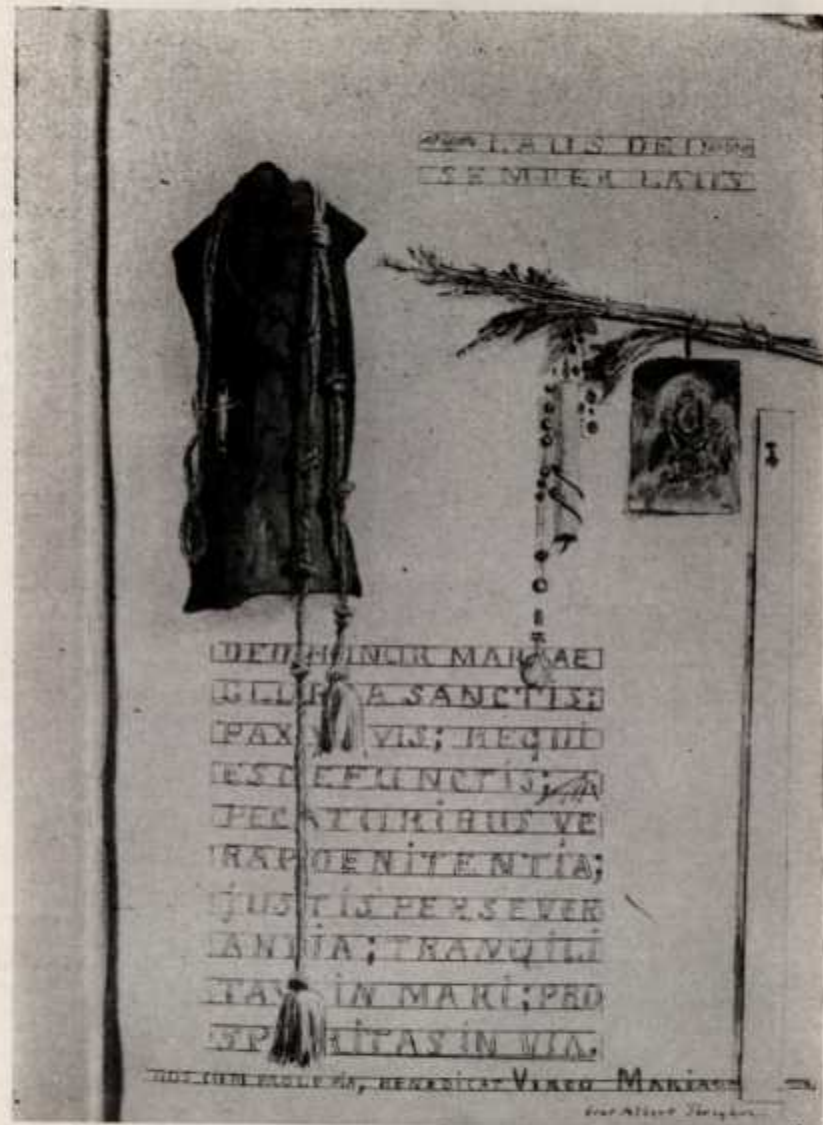 LAUS
SEMPER LAUS
DEO HONOR MARIAE
GLORIA SANCTIS;
PAX VIVIS; REQUI
ES DEFUNCTIS;
PECATORIBUS VE
RA POENITENTIA;
JUSTIS PERSEVER
ANTIA; TRANQILI
TAS IN MARI; PRO
SPERITAS IN VIA.
NOS CUM PROLE PIA, BENEDICAT VIRGO MARIA
Albert